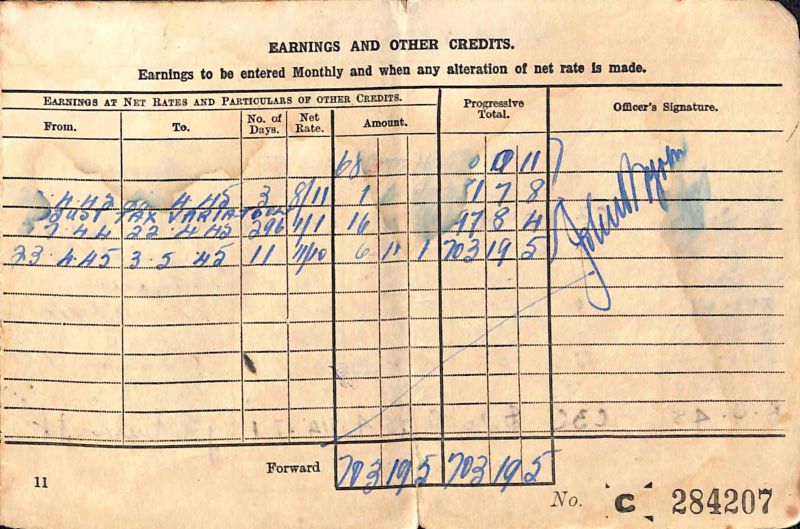 EARNINGS AND OTHER CREDITS.
Earnings to be entered Monthly and when any alteration of net rate is made.
EARNINGS AT NET RATES AND PARTICULARS OF OTHER CREDITS.
Progressive Total.
Officer's Signature.
From. To. No. of Days. Net Rate. Amount.
68
0 11
4.45 3 8/11 1 7 8
TAX VARIATION
7.44 22.4.45 296 1/1 16 8 4
23.4.45 3.5.45 11 11/10 6 11 1 703 19 5
Forward 703 19 5 703 19 5
11
No. C 284207